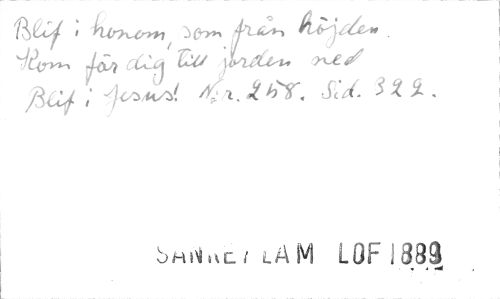 Blif i honom, som från höjden.
Kom för dig till jorden ned
Blif i Jesus! N:r. 258. Sid. 322.
SANKEY LAM LOF 1889